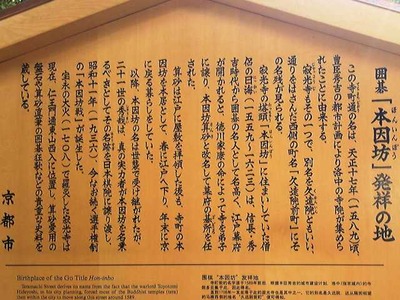 囲碁「本因坊」発祥の地
この寺町通の名は、天正十七年(一五八九)頃、
豊臣秀吉の都市計画により洛中の寺院が集めら
れたことに由来する。
寂光寺もその一つで、別名を久遠院ともいい、
通りはさんだ西側の町名「久遠院前町」にそ
の名残が見られる。
寂光寺の塔頭「本因坊」に住まいしていた僧
侶の日海(一五五九〜一六二三)は、信長・秀
吉時代から囲碁の名人として名高く、江戸幕府
が開かれると、徳川家康の命によって寺を弟
に譲り、本因坊算砂と改名して幕府の碁所を任
された。
算砂は江戸に屋敷を拝領した後も、寺町の本
因坊を本居として、春に江戸へ下り、年末に京
に戻る暮らしをしていた。
以降、本因坊の名は世襲で受け継がれたが、
二十一世の秀哉は、真の実力者が本因坊を名乗
るべきとしてその名跡を日本棋院に譲り渡し、
昭和十一年(一九三六)、今なお続く選手権制
の「本因坊戦」が誕生した。
宝永の大火(一七〇八)で罹災した寂光寺は
現在、仁王門通東山西入に位置し、算砂愛用の
盤石や算砂直筆の囲碁狂歌などの貴重な史料を
蔵している。
京都市
Birthplace of the Go Title Hon-inbo
Teramachi Street derives its name from the fact that the warlord Toyotomi
Hideyoshi, in his city planning, forced most of the Buddhist temples (tera)
then within the city to move along this street around 1589.
围棋“本因坊”发祥地